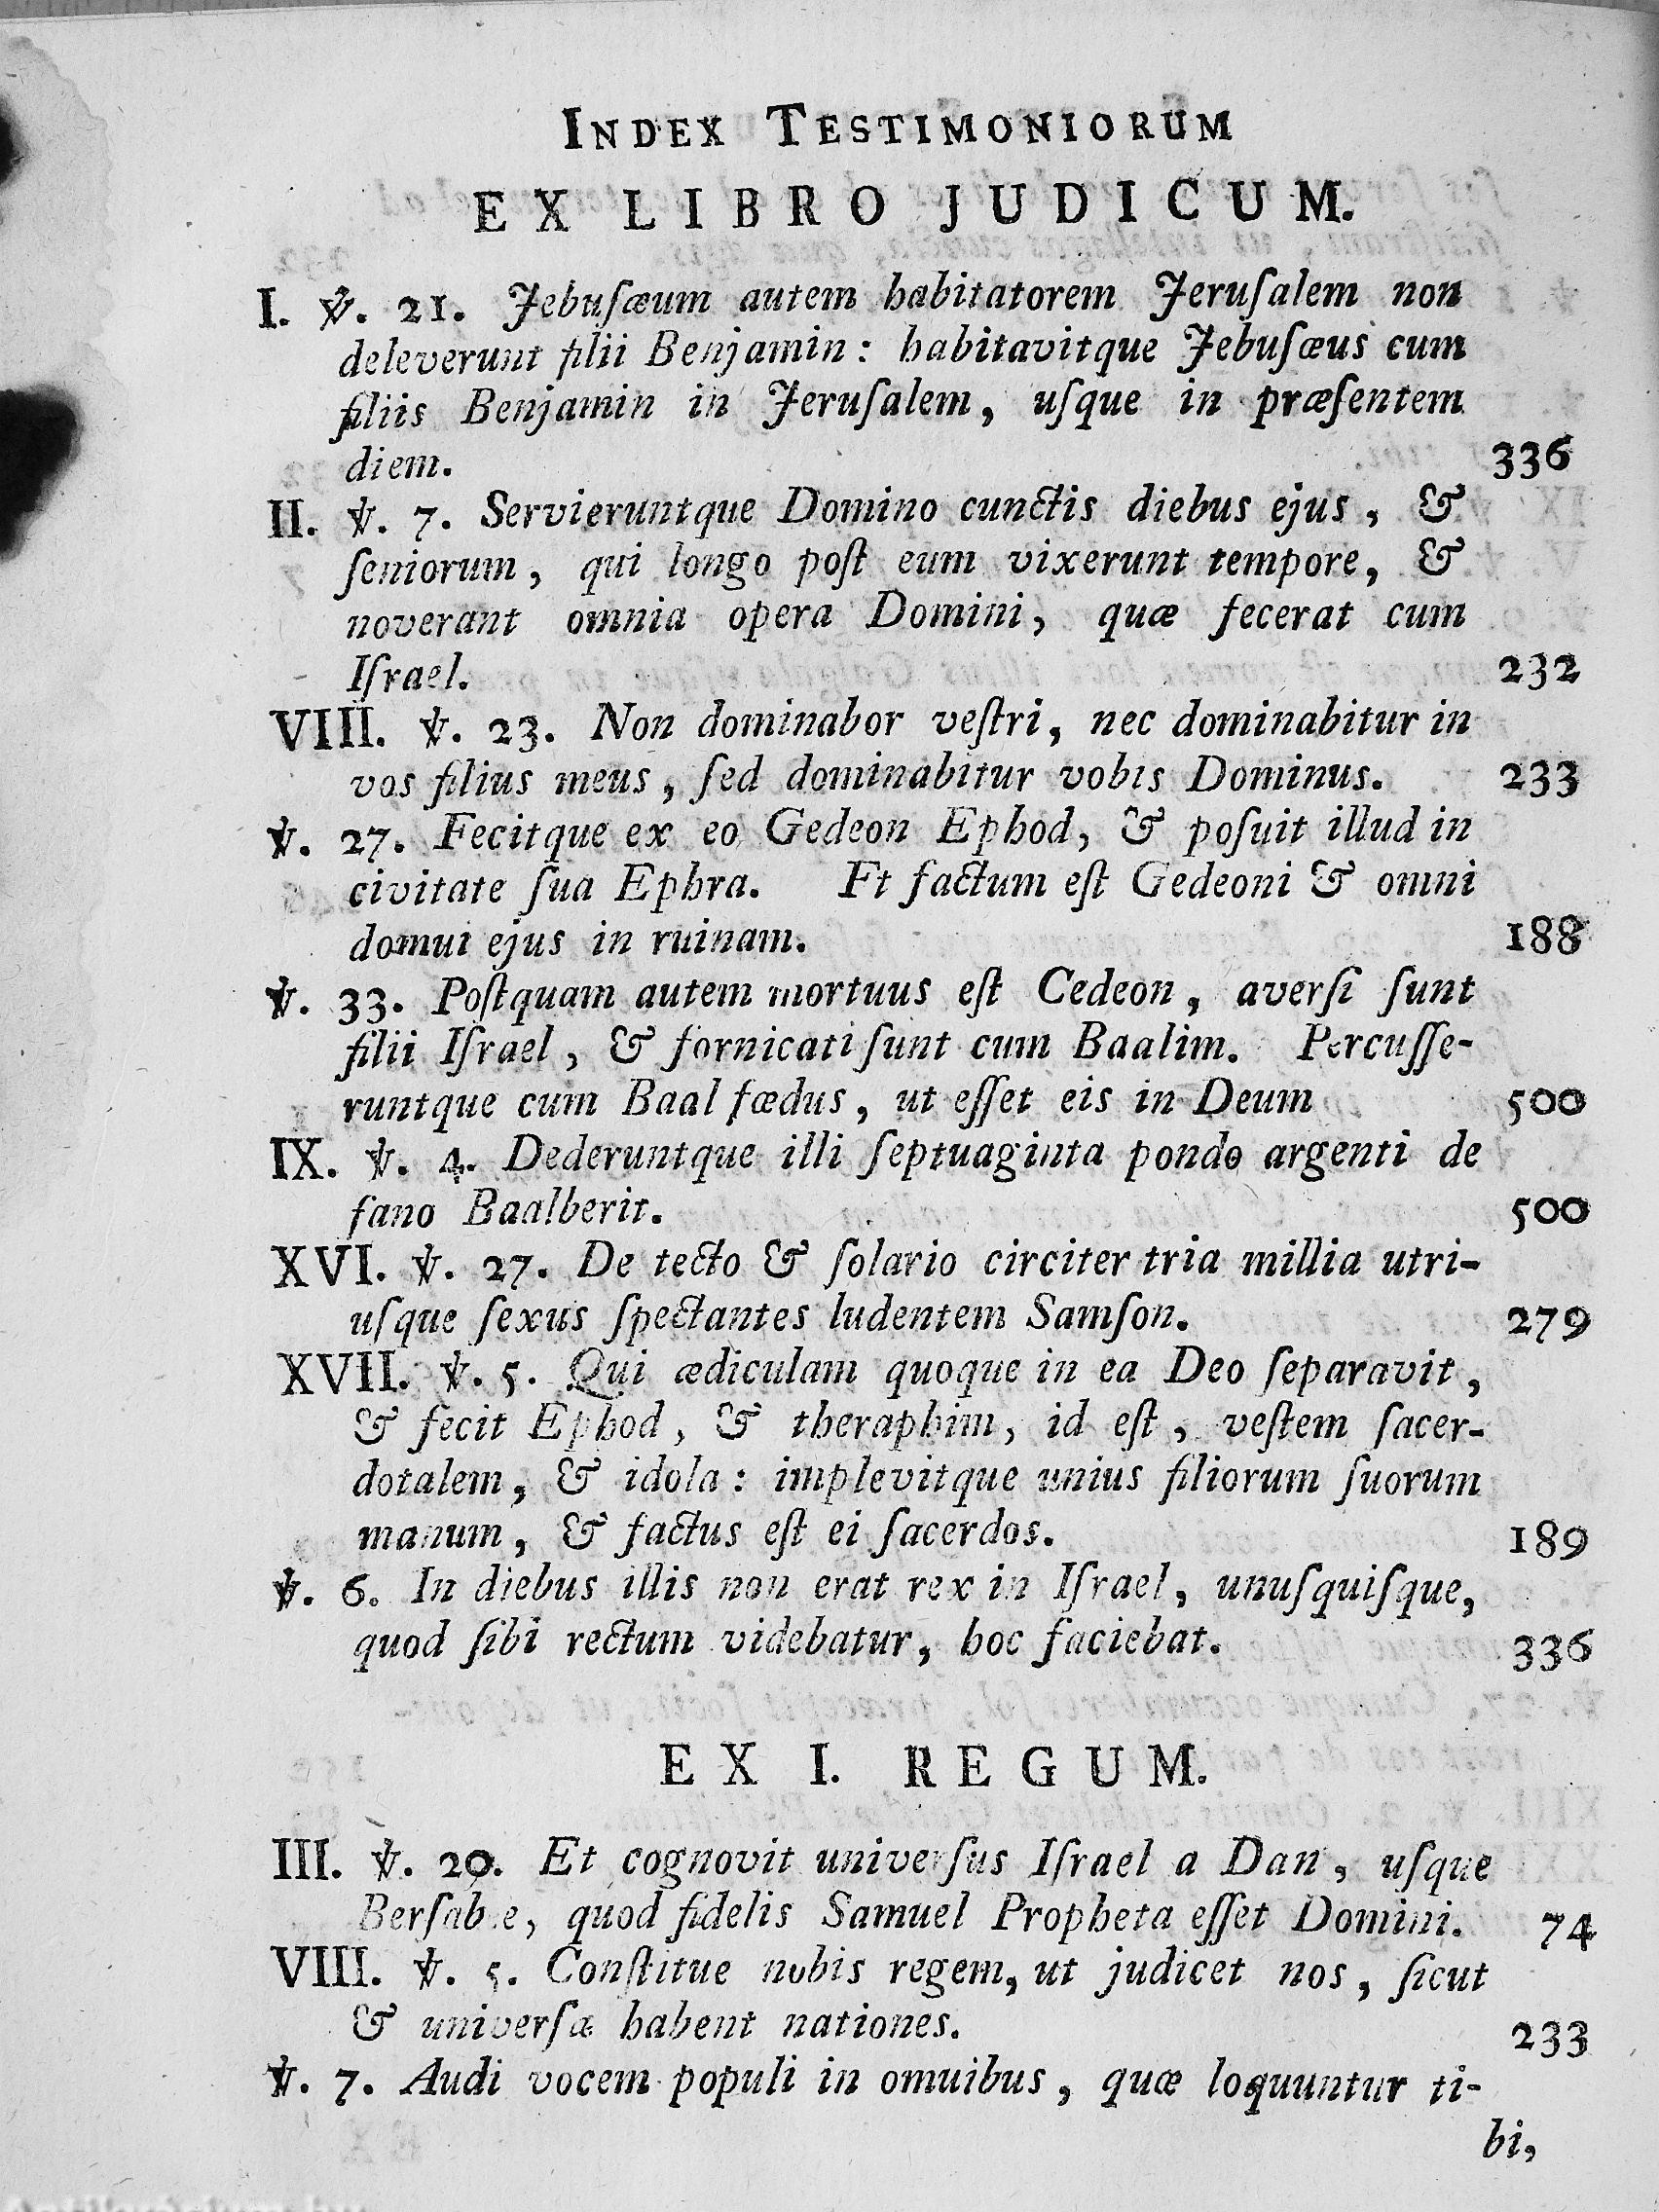 INDEX TESTIMONIORUM
EX LIBRO JUDICUM.
I. ℣. 21. Jebuſæum autem habitatorem Jeruſalem non
deleverunt filii Benjamin: habitavitque Jebuſæus cum
filiis Benjamin in Jeruſalem, uſque in præſentem
diem. 336
II. ℣. 7. Servieruntque Domino cunctis diebus ejus, &
ſeniorum, qui longo poſt eum vixerunt tempore, &
noverant omnia opera Domini, quæ fecerat cum
Iſrael. 232
VIII. ℣. 23. Non dominabor veſtri, nec dominabitur in
vos filius meus, ſed dominabitur vobis Dominus. 233
℣. 27. Fecitque ex eo Gedeon Ephod, & poſuit illud in
civitate ſua Ephra. Et factum eſt Gedeoni & omni
domui ejus in ruinam. 188
℣. 33. Poſtquam autem mortuus eſt Cedeon, averſi ſunt
filii Iſrael, & fornicati ſunt cum Baalim. Percuſſe-
runtque cum Baal fœdus, ut eſſet eis in Deum 500
IX. ℣. 4. Dederuntque illi ſeptuaginta pondo argenti de
fano Baalberit. 500
XVI. ℣. 27. De tecto & ſolario circiter tria millia utri-
uſque ſexus ſpectantes ludentem Samſon. 279
XVII. ℣. 5. Qui ædiculam quoque in ea Deo ſeparavit,
& fecit Ephod, & theraphim, id eſt, veſtem ſacer-
dotalem, & idola: implevitque unius filiorum ſuorum
manum, & factus eſt ei ſacerdos. 189
℣. 6. In diebus illis non erat rex in Iſrael, unuſquiſque,
quod ſibi rectum videbatur, hoc faciebat. 336
EX I. REGUM.
III. ℣. 20. Et cognovit univerſus Iſrael a Dan, uſque
Berſabee, quod fidelis Samuel Propheta eſſet Domini. 74
VIII. ℣. 5. Conſtitue nobis regem, ut judicet nos, ſicut
& univerſæ habent nationes. 233
℣. 7. Audi vocem populi in omuibus, quæ loquuntur ti-
bi,